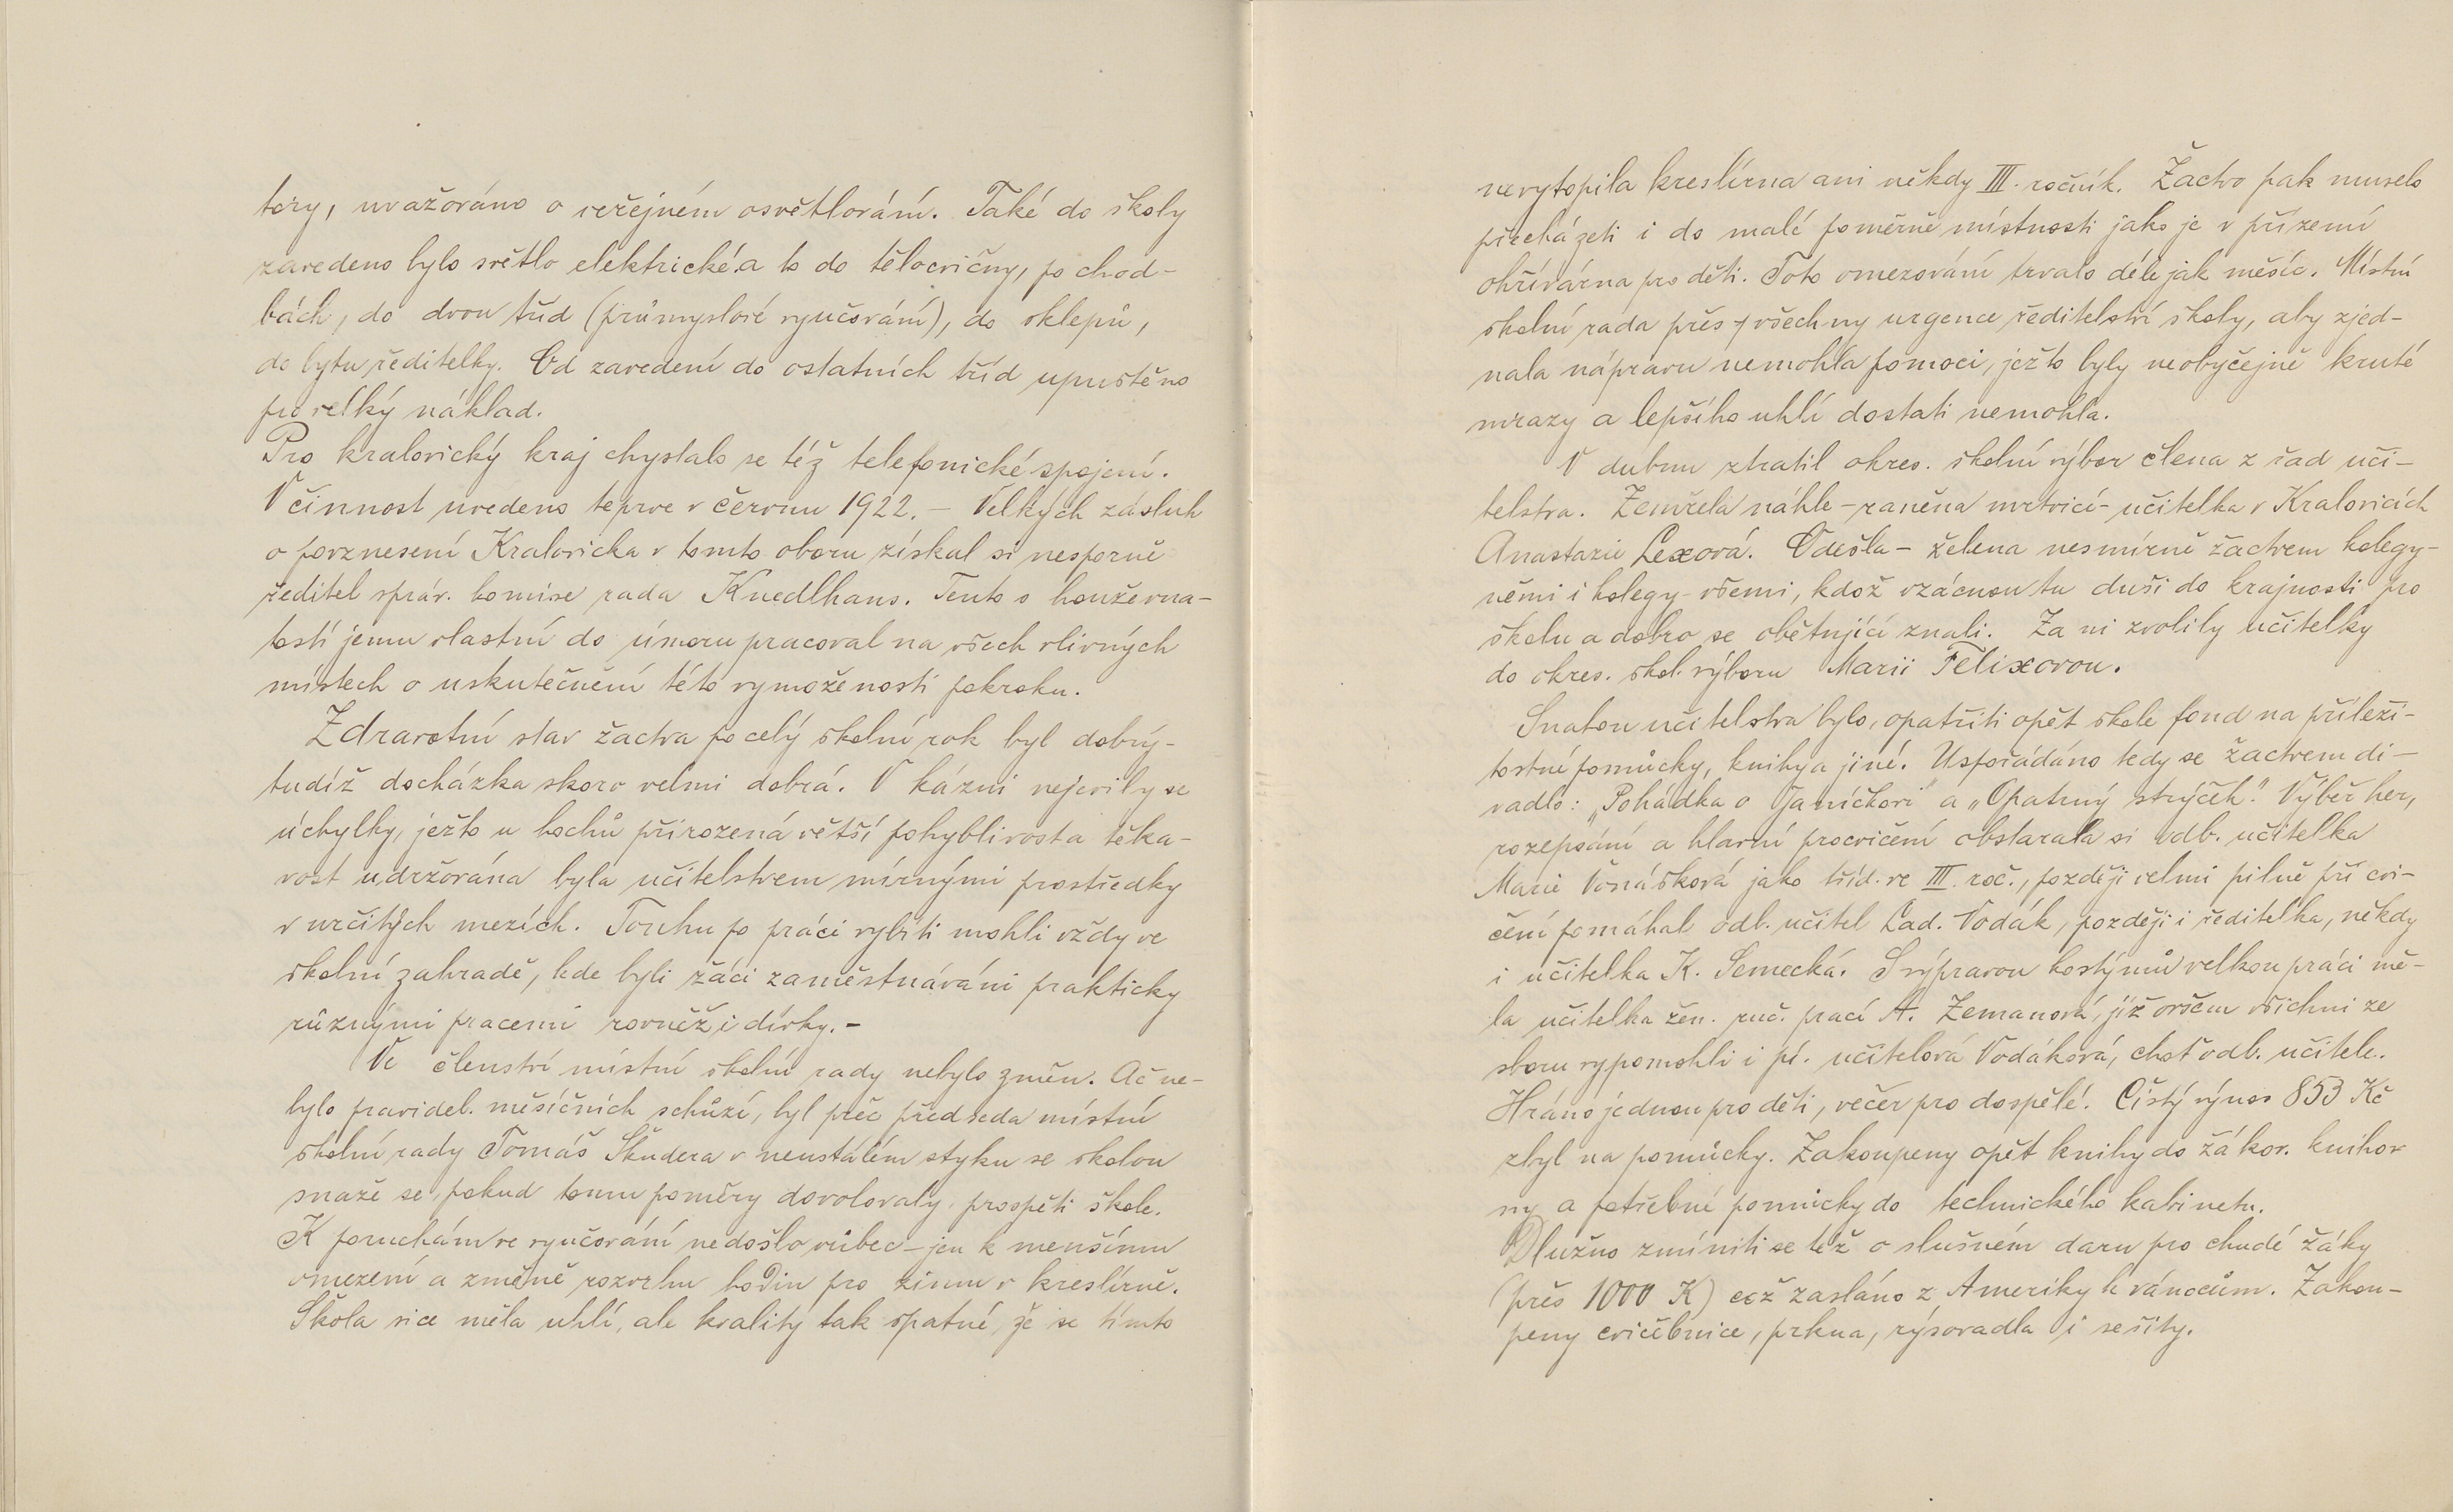 tory, uvažováno o veřejném osvětlování. Také do školy
zavedeno bylo světlo elektrické a to do tělocvičny, po chod-
bách, do dvou tříd (průmyslové vyučování), do sklepů,
do bytu ředitelky. Od zavedení do ostatních tříd upuštěno
pro velký náklad.
Pro kralovický kraj chystalo se též telefonické spojení.
V činnost uvedeno teprve v červnu 1922. – Velkých zásluh
o povznesení Kralovicka v tomto oboru získal si nesporně
ředitel správ. komise rada Knedlhans. Tento s houževna-
tostí jemu vlastní do úmoru pracoval na všech vlivných
místech o uskutečnění této vymoženosti pokroku.
Zdravotní stav žactva po celý školní rok byl dobrý-
tudíž docházka skoro velmi dobrá. V kázni nejevily se
úchylky, ježto u hochů přirozená větší pohyblivost a těka-
vost udržována byla učitelstvem mírnými prostředky
v určitých mezích. Touhu po práci vybíti mohli vždy ve
školní zahradě, kde byli žáci zaměstnáváni prakticky
různými pracemi rovněž i dívky. –
Ve členství místní školní rady nebylo změn. Ač ne-
bylo pravidel. měsíčních schůzí, byl přec předseda místní
školní rady Tomáš Škudera v neustálém styku se školou
snaže se, pokud tomu poměry dovolovaly, prospěti škole.
K poruchám ve vyučování nedošlo vůbec – jen k menšímu
omezení a změně rozvrhu hodin pro zimu v kreslírně.
Škola sice měla uhlí, ale kvality tak špatné, že se tímto
nevytopila kreslírna ani někdy III. ročník. Žactvo pak muselo
přecházeti i do malé poměrně místnosti jako je v přízemí
ohřívárna pro děti. Toto omezování trvalo déle jak měsíc. Místní
školní rada přes všechny urgence ředitelství školy, aby zjed-
nala nápravu nemohla pomoci, ježto byly neobyčejně kruté
mrazy a lepšího uhlí dostati nemohla.
V dubnu ztratil okres. školní výbor člena z řad uči-
telstva. Zemřela náhle – raněna mrtvicí – učitelka v Kralovicích
Anastazie Lexová. Odešla – želena nesmírně žactvem kolegy-
němi i kolegy – všemi, kdož vzácnou tu duši do krajnosti pro
školu a dobro se obětující znali. Za ni zvolily učitelky
do okres. škol. výboru Marii Felixovou.
Snahou učitelstva bylo, opatřiti opět škole fond na příleži-
tostné pomůcky, knihy a jiné. Uspořádáno tedy se žactvem di-
vadlo: „Pohádka o Janíčkovi" a „Opatrný strýček". Výběr her,
rozepsání a hlavní procvičení obstarala si odb. učitelka
Marie Voňásková jako tříd. ve III. roč., později velmi pilně při cvi-
čení pomáhal odb. učitel Lad. Vodák, později i ředitelka, někdy
i učitelka K. Semecká. S výpravou kostýmů velkou práci mě-
la učitelka žen. ruč. prací A. Zemanová, jíž ovšem všichni ze
sboru vypomohli i pí. učitelová Vodáková, choť odb. učitele.
Hráno jednou pro děti, večer pro dospělé. Čistý výnos 853 Kč
zbyl na pomůcky. Zakoupeny opět knihy do žákov. knihov
ny a potřebné pomůcky do technického kabinetu.
Dlužno zmíniti se též o slušném daru pro chudé žáky
(přes 1000 K) což zasláno z Ameriky k vánocům. Zakou-
peny cvičebnice, prkna, rýsovadla i sešity.